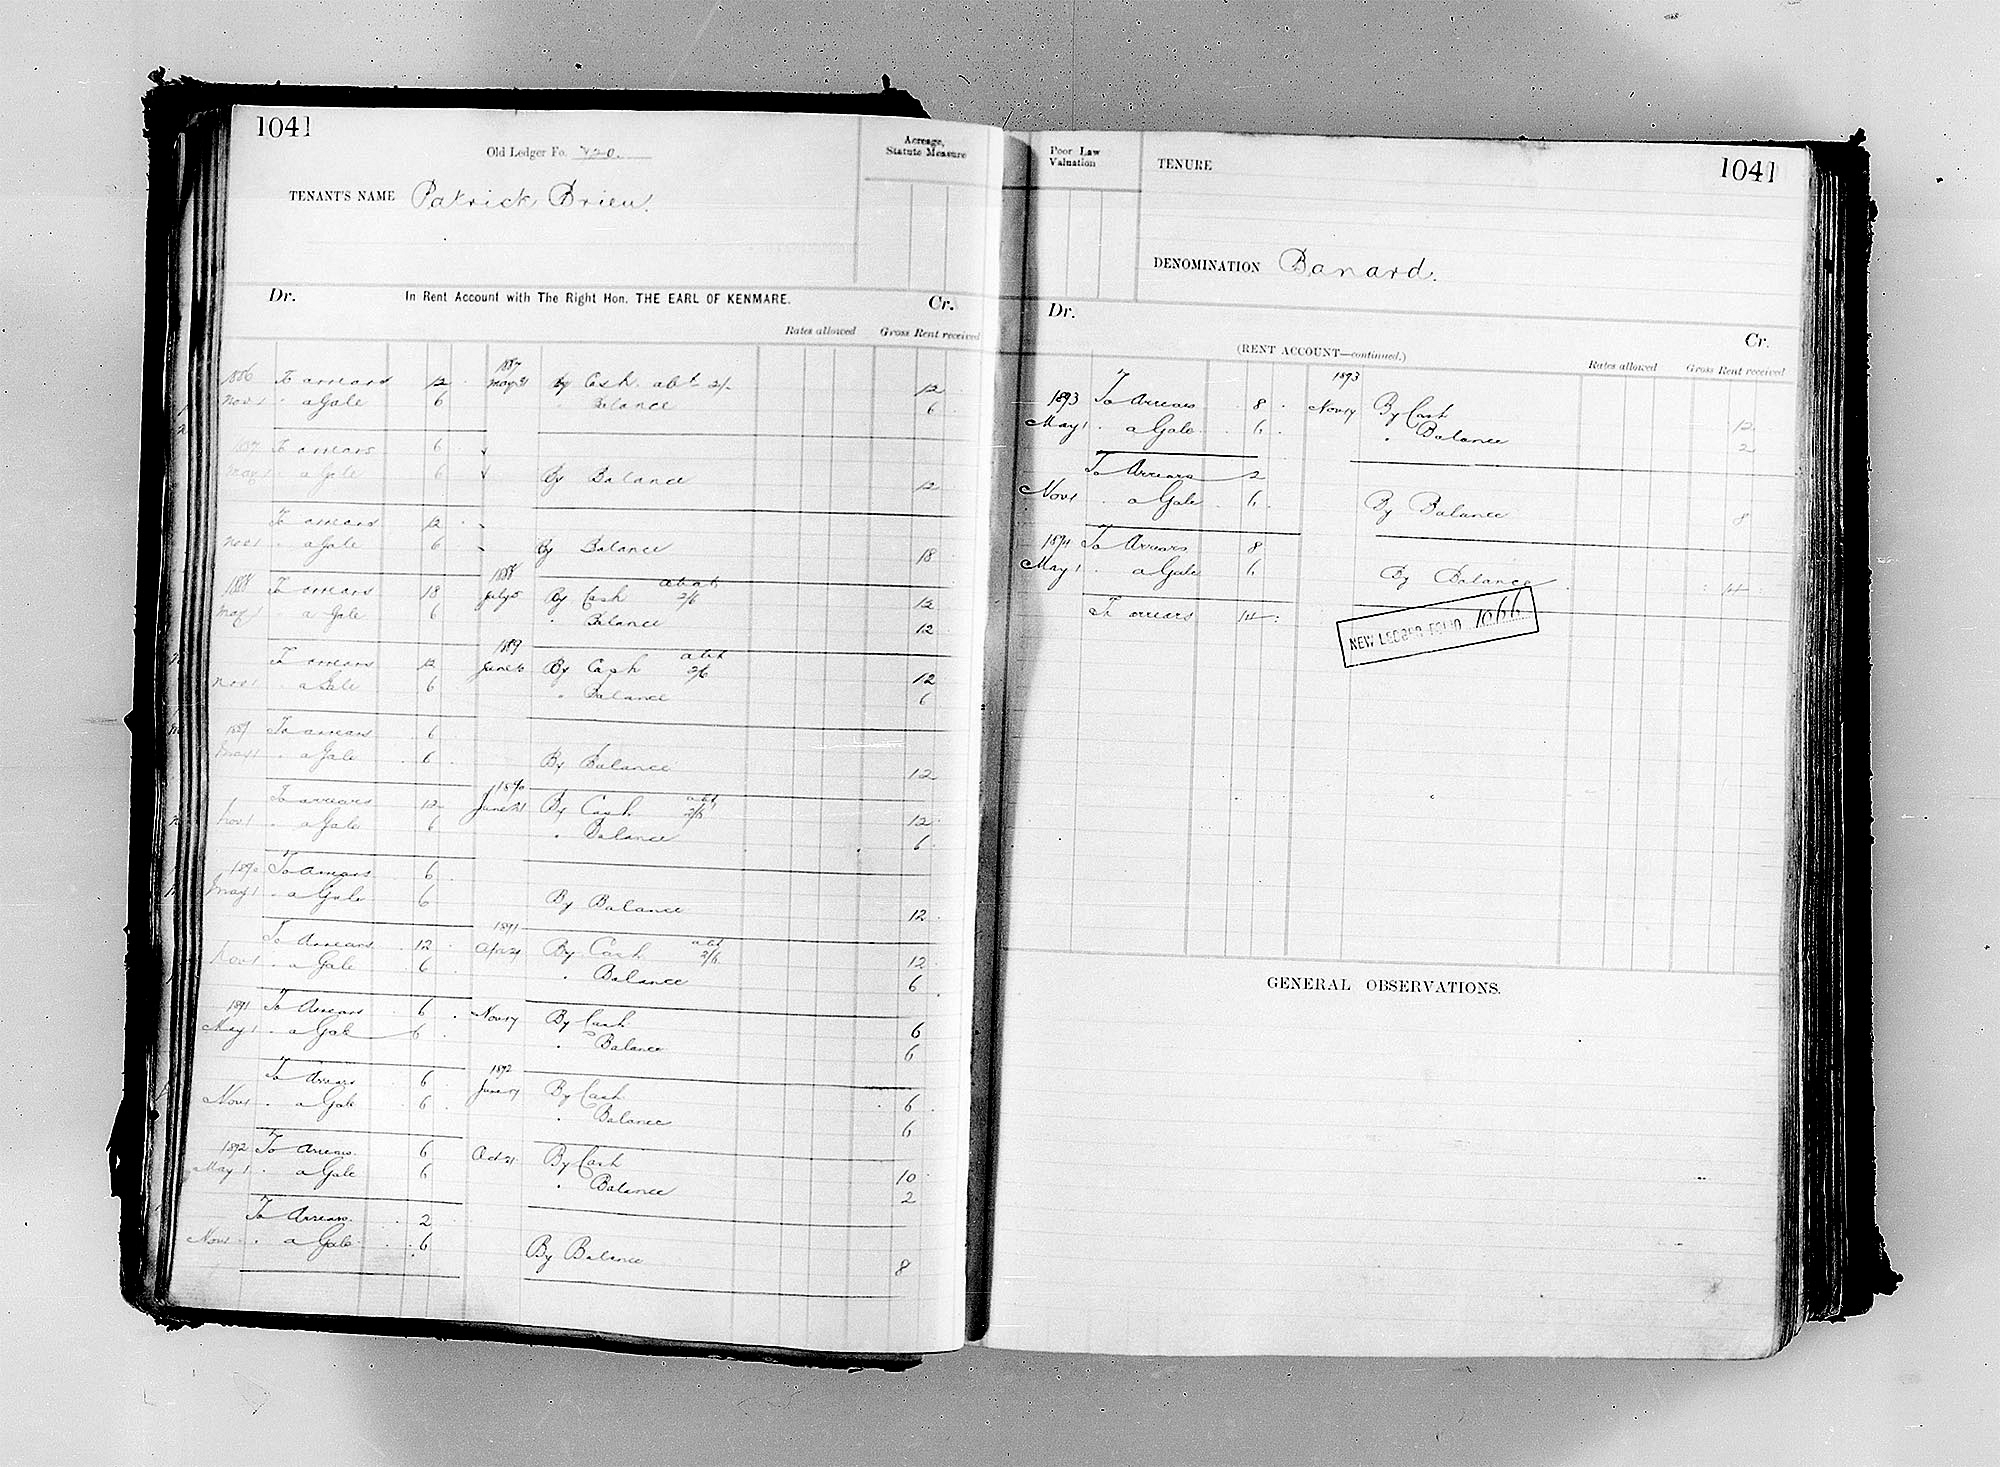 1041
Old Ledger Fo. 720.
Acreage,
Statute Measure
TENANT'S NAME Patrick Brien.
Dr. In Rent Account with The Right Hon. THE EARL OF KENMARE. Cr.
Rates allowed Gross Rent received
1887
1886 To arrears 12 May 31 By Cash abt 2/- 12
Nov 1 " a Gale 6 " Balance 6
1887 To arrears 6
May 1 " a Gale 6 By Balance 12
To arrears 12
Nov 1 " a Gale 6 By Balance 18
1888 abat
1888 To arrears 18 July 5 By Cash 2/6 12
May 1 " a Gale 6 " Balance 12
1889 abt
To arrears 12 June By Cash 2/6 12
Nov 1 " a Gale 6 " Balance 6
1889 To arrears 6
May 1 " a Gale 6 By Balance 12
1890 abt
To arrears 12 June 21 By Cash 2/6 12
Nov 1 " a Gale 6 " Balance 6
1890 To Arrears 6
May 1 " a Gale 6 By Balance 12
1891 abt
To Arrears 12 Apr 24 By Cash 2/6 12
Nov 1 " a Gale 6 " Balance 6
1891 To Arrears 6 Nov 17 By Cash 6
May 1 " a Gale 6 " Balance 6
1892
To Arrears 6 June By Cash 6
Nov 1 " a Gale 6 " Balance 6
1892 To Arrears 6 Oct 21 By Cash 10
May 1 " a Gale 6 " Balance 2
To Arrears 2
Nov 1 " a Gale 6 By Balance 8
Poor Law
Valuation
TENURE
1041
DENOMINATION Banard.
Dr. Cr.
(RENT ACCOUNT—continued.)
Rates allowed Gross Rent received
1893
1893 To Arrears 8 Nov 17 By Cash 12
May 1 " a Gale 6 " Balance 2
To Arrears 2
Nov 1 " a Gale 6 By Balance 8
1894 To Arrears 8
May 1 " a Gale 6 By Balance 14
To arrears 14
NEW LEDGER FOLIO 1066
GENERAL OBSERVATIONS.